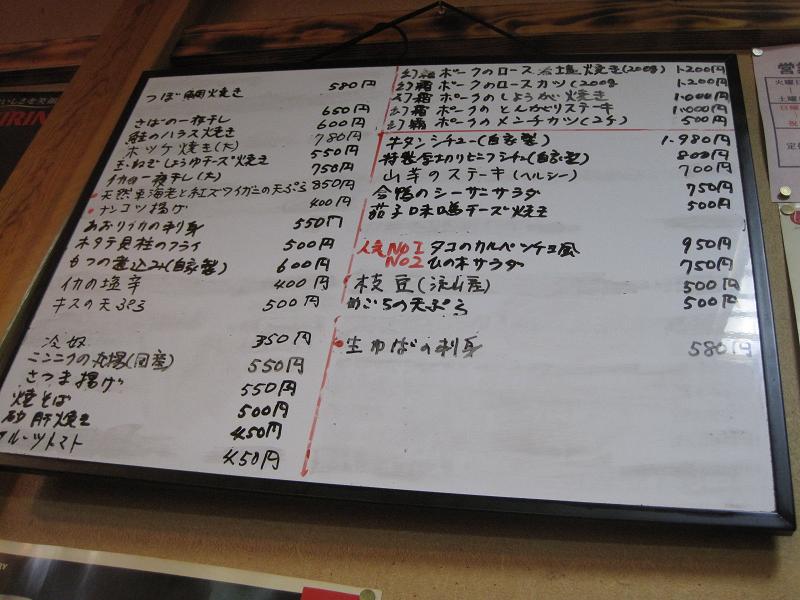 つぼ鯛焼き 580円
さばの一夜干し 650円
鮭のハラス焼き 600円
ホッケ焼き(大) 780円
玉ねぎしょうゆチーズ焼き 550円
イカの一夜干し(大) 750円
天然車海老と紅ズワイガニの天ぷら 850円
ナンコツ揚げ 400円
あおりイカの刺身 550円
ホタテ貝柱のフライ 500円
もつの煮込み(自家製) 600円
イカの塩辛 400円
キスの天ぷら 500円
冷奴 350円
ニンニクの丸揚(国産) 550円
さつま揚げ 550円
焼そば 500円
砂肝焼き 450円
フルーツトマト 450円
幻霜ポークのロース岩塩焼き(200g) 1.200円
幻霜ポークのロースカツ(200g) 1.200円
幻霜ポークのしょうが焼き 1.000円
幻霜ポークのとんかどりステーキ 1.000円
幻霜ポークのメンチカツ(2ケ) 500円
牛タンシチュー(自家製) 1.980円
特製厚切りビーフシチュー(自家製) 800円
山芋のステーキ(ヘルシー) 700円
合鴨のシーザーサラダ 750円
茄子味噌チーズ焼き 500円
人気No1 タコのカルパッチョ風 950円
No2 ひの木サラダ 750円
枝豆(流山産) 500円
めごちの天ぷら 500円
生ゆばの刺身 580円
営業
火曜日
土曜
日曜
祝
定休